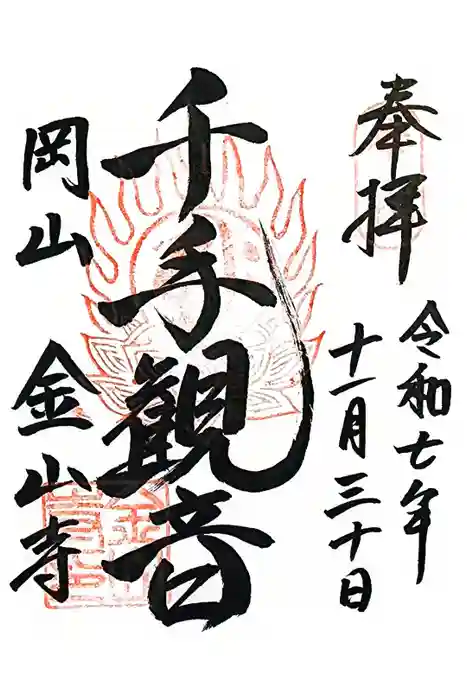 奉拝
令和七年
十一月三十日
千手観音
岡山 金山寺